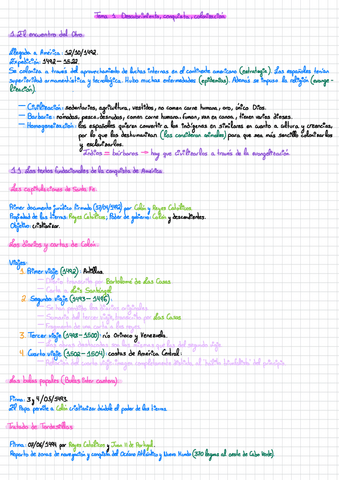 Tema 1. Descubrimiento, conquista, colonización
1. El encuentro del Otro.
Llegada a América: 12/10/1492.
Expedición: 1492 – 1522.
Se coloniza a través del aprovechamiento de luchas internas en el continente americano (estrategia). Los españoles tenían
superioridad armamentística y tecnológica. Hubo muchas enfermedades (epidemias). Además se impuso la misión (evange-
lización).
– Civilización: sedentarios, agricultura, vestidos, no comen carne humana, oro, único Dios.
– Barbarie: nómadas, pesca, desnudos, comen carne humana, fuman, van en canoa, tienen varios dioses.
– Homogeneización: los españoles quieren convertir a los indígenas en similares en cuanto a cultura y creencias,
por lo que los deshumanizan (los consideran animales) para que sea más sencillo colonizarlos
y esclavizarlos.
Indios = bárbaros → hay que civilizarlos a través de la evangelización
1.1. Los textos fundacionales de la conquista de América
Las capitulaciones de Santa Fe.
Primer documento jurídico firmado (17/04/1492) por Colón y Reyes Católicos.
Propiedad de las tierras: Reyes Católicos; Poder de gobierno: Colón y descendientes.
Objetivo: cristianizar.
Los diarios y cartas de Colón.
Viajes:
1. Primer viaje (1492): Antillas.
– Diario: transcrito por Bartolomé de Las Casas
– Carta a Luis Santángel
2. Segundo viaje (1493 – 1496).
– Se han perdido los diarios originales.
– Sumario del tercer viaje, transcrito por Las Casas
– Fragmento de una carta a los reyes
3. Tercer viaje (1498 – 1500): río Orinoco y Venezuela.
4. Cuarto viaje (1502 – 1504): costas de América Central:
Las bulas papales (Bulas Inter caetera).
Firma: 3 y 4/05/1493.
El Papa permite a Colón cristianizar dándole el poder de las tierras.
Tratado de Tordesillas
Firma: 07/06/1494 por Reyes Católicos y Juan II de Portugal.
Reparto de zonas de navegación y conquista del Océano Atlántico y Nuevo Mundo (370 leguas al oeste de Cabo Verde).